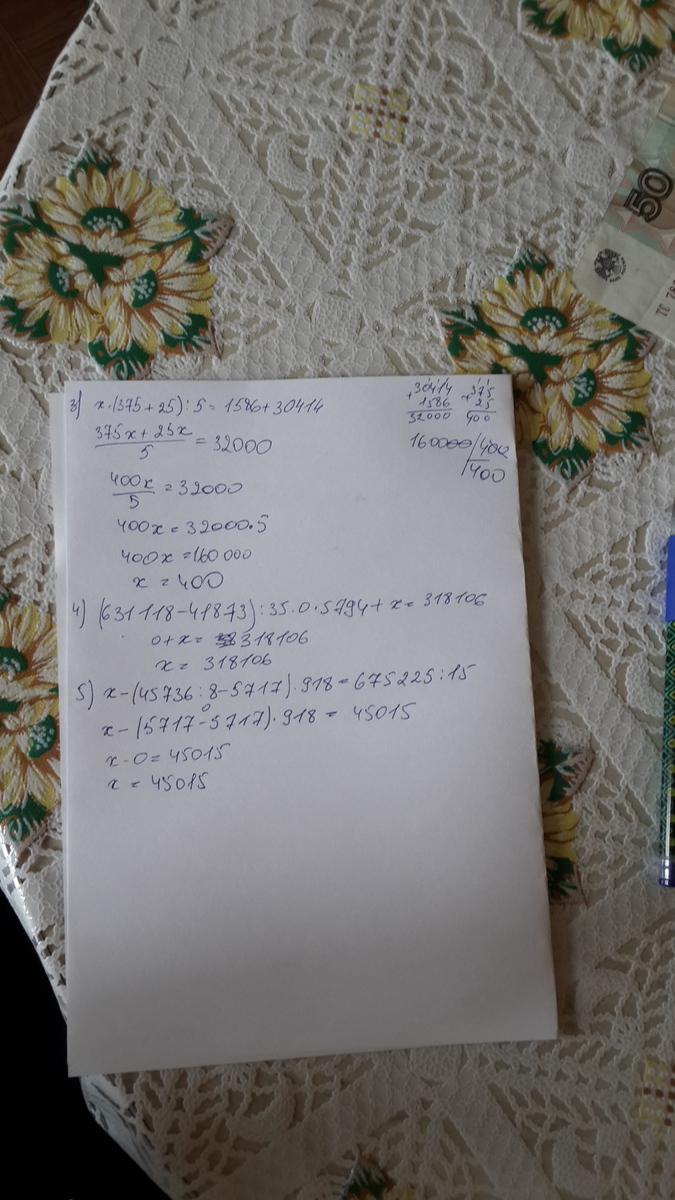 3) x·(375+25):5 = 1586+30414
375x + 25x
5
= 32000
400x
5
= 32000
400x = 32000·5
400x = 160 000
x = 400
+30414
1586
32000
+375
25
400
160000 400
400
4) (631118-41873):35·0·5794+x = 318106
0+x = 318106
x = 318106
5) x-(45736:8-5717)·918 = 675225:15
0
x-(5717-5717)·918 = 45015
x-0 = 45015
x = 45015
50